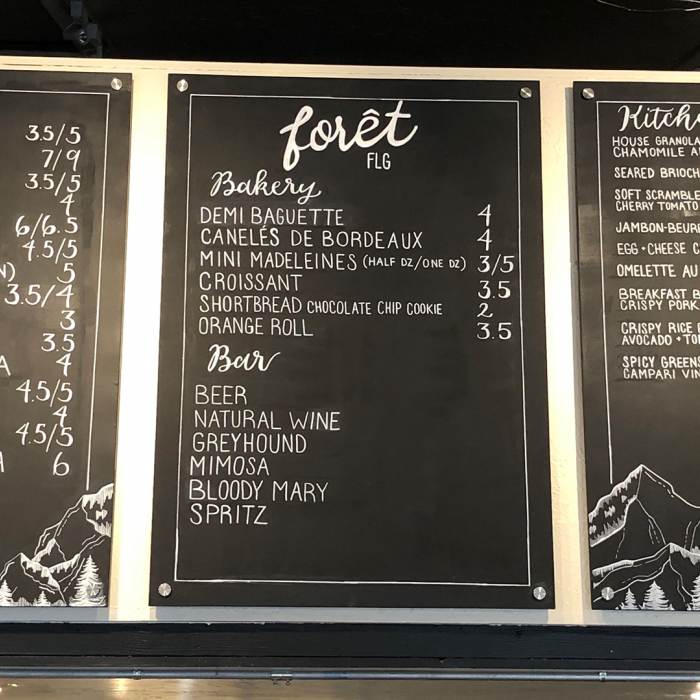 3.5/5
7/9
3.5/5
4
6/6.5
4.5/5
5
3.5/4
3
3.5
4
4.5/5
4
4.5/5
6
forêt
FLG
Bakery
DEMI BAGUETTE 4
CANELÉS DE BORDEAUX 4
MINI MADELEINES (HALF DZ/ONE DZ) 3/5
CROISSANT 3.5
SHORTBREAD CHOCOLATE CHIP COOKIE 2
ORANGE ROLL 3.5
Bar
BEER
NATURAL WINE
GREYHOUND
MIMOSA
BLOODY MARY
SPRITZ
HOUSE GRANOLA
CHAMOMILE
SEARED
SOFT
CHERRY TOMATO
EGG + CHEESE
OMELETTE AU
BREAKFAST
CRISPY PORK
CRISPY RICE
AVOCADO +
SPICY GREENS
CAMPARI